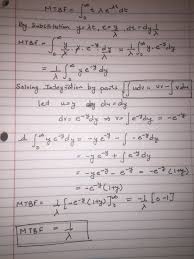 MTBF = ∫₀^∞ t λ e^-λt dt
By Substitution y=λt, t=y/λ, dt=dy 1/λ
MTBF = ∫₀^∞ y/λ · λ · e^-y dy/λ = 1/λ ∫₀^∞ y·e^-y dy
= 1/λ ∫₀^∞ y e^-y dy
Solving Integration by parts ∫u dv = uv - ∫v du
let u=y dy=du
dv = e^-y dy ⇒ v = ∫e^-y dy = -e^-y
1/λ ∫ y e^-y dy = -y e^-y - ∫-e^-y dy
= -y e^-y + ∫e^-y dy
= -y e^-y - e^-y
= -e^-y (1+y)
1/λ [-e^-y (1+y)]₀^∞ = -1/λ [0-1]
MTBF = 1/λ